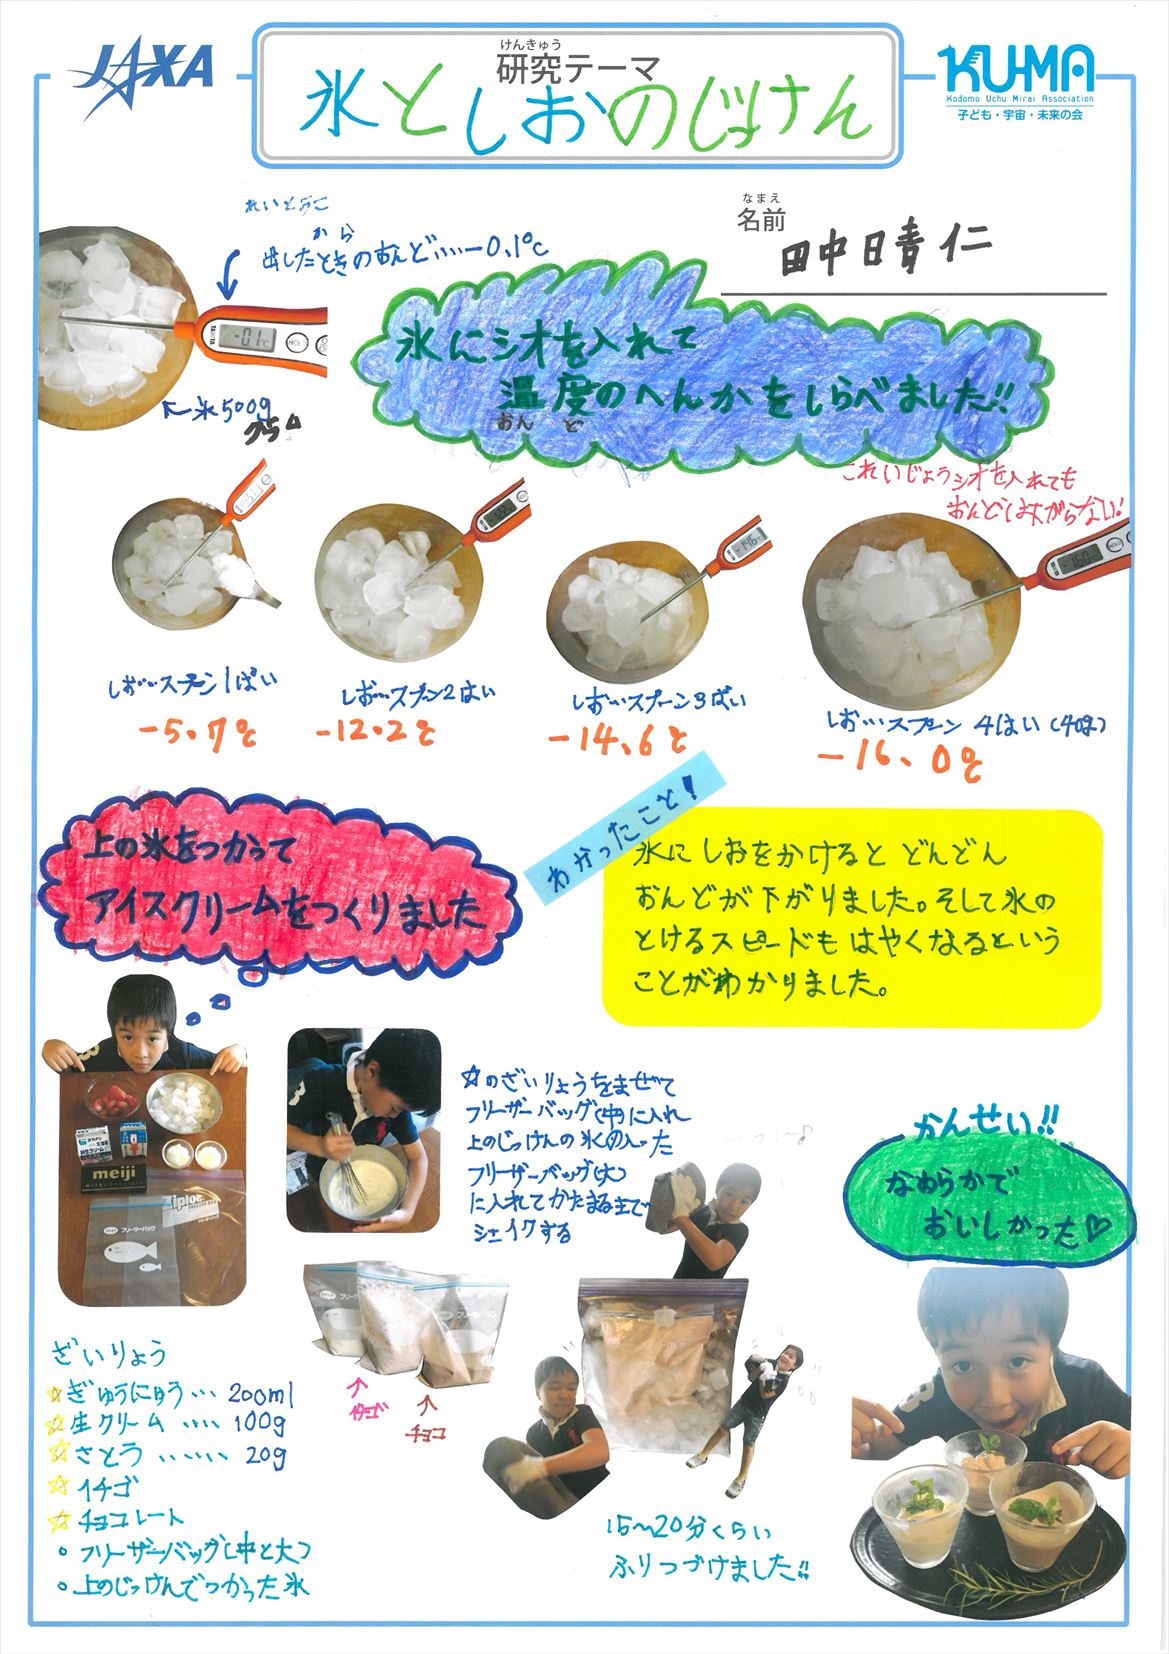 JAXA
けんきゅう
研究テーマ
氷としおのじっけん
KU-MA
Kodomo Uchu Mirai Association
子ども・宇宙・未来の会
なまえ
名前
田中日青仁
れいとうこ
から
出したときのおんど……-0.1℃
-0.1℃
HOLD
TANITA
←氷500g
グラム
氷にシオを入れて
温度のへんかをしらべました!!
おんど
これいじょうシオを入れても
おんどは下がらない!
-14.6℃
-16.0℃
しお…スプーン1ぱい
-5.7℃
しお…スプーン2はい
-12.2℃
しお…スプーン3ばい
-14.6℃
しお…スプーン 4はい(40g)
-16.0℃
わかったこと!
氷にしおをかけると どんどん
おんどが下がりました。そして氷の
とけるスピードもはやくなるという
ことがわかりました。
上の氷をつかって
アイスクリームをつくりました
meiji
Ziploc
フリーザーバッグ
☆のざいりょうをまぜて
フリーザーバッグ(中)に入れ
上のじっけんの氷の入った
フリーザーバッグ(大)
に入れてかたまるまで
シェイクする
フリフリ〜♪
かんせい!!
なめらかで
おいしかった♡
イチゴ
チョコ
15〜20分くらい
ふりつづけました!!
ざいりょう
☆ぎゅうにゅう… 200ml
☆生クリーム ‥‥ 100g
☆さとう ‥‥‥ 20g
☆イチゴ
☆チョコレート
・フリーザーバッグ(中と大)
・上のじっけんでつかった氷